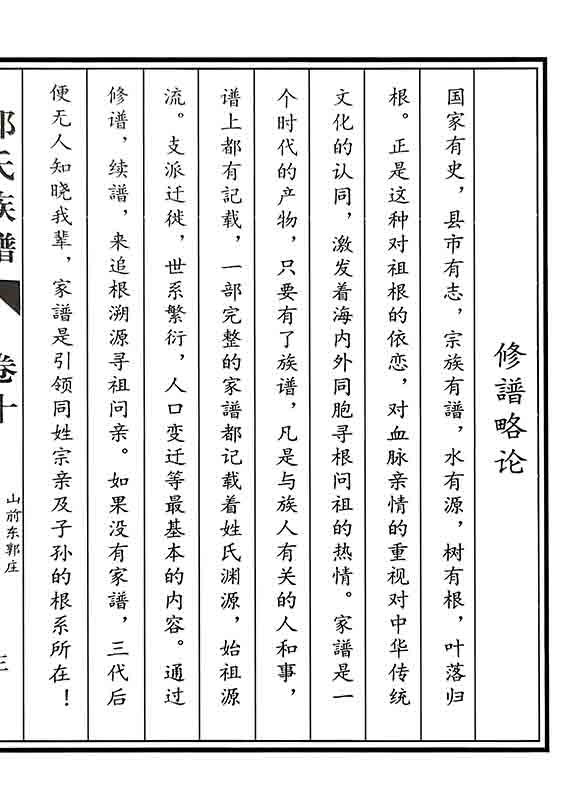 修譜略论
国家有史，县市有志，宗族有譜，水有源，树有根，叶落归
根。正是这种对祖根的依恋，对血脉亲情的重视对中华传统
文化的认同，激发着海内外同胞寻根问祖的热情。家譜是一
个时代的产物，只要有了族谱，凡是与族人有关的人和事，
谱上都有記载，一部完整的家譜都记载着姓氏渊源，始祖源
流。支派迁徙，世系繁衍，人口变迁等最基本的内容。通过
修谱，续譜，来追根溯源寻祖问亲。如果没有家譜，三代后
便无人知晓我辈，家譜是引领同姓宗亲及子孙的根系所在！
氏族譜
卷十
山前东郭庄